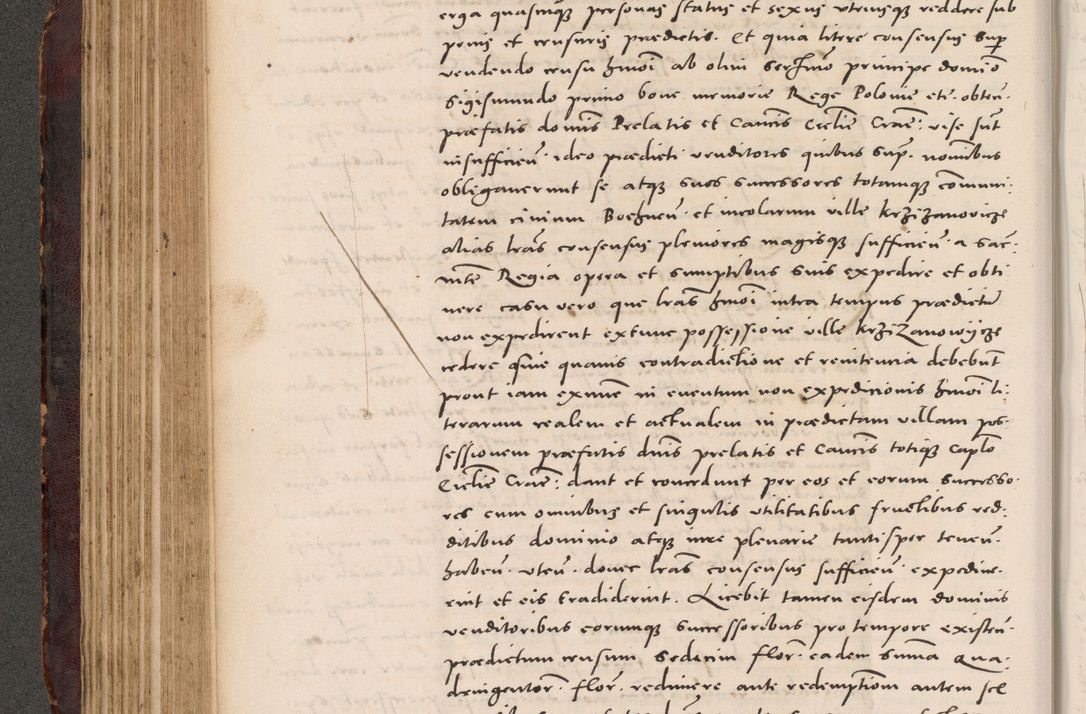 erga quascunq personas status et sexus utriusqz reddere sub
penis et censuris praedictis. Et quia litere consensus sup
vendendo censu hmoi ab olim Sermo principe domino
Sigismundo primo bone memorie Rege Polonie etc. obten.
praefatis domis Prelatis et Canois Ecclie Crac: vise sunt
insufficien. ideo praedicti venditores quibus sup. nomibus
obligaverunt se atqz suos successores totamqz communi:
tatem civium Bochnen. et incolarum ville krziżanovicze
alias lras consensus pleniores magisqz sufficien. a Sac:
mte Regia opera et sumptibus suis expedire et obti
nere casu vero quo lras hmoi intra tempus praedictu
non expedirent extunc possessione ville krziżanowijcze
cedere sine quavis contradictione et renitencia debebunt
prout iam exnunc in eventum non expedicionis hmoi li:
terarum realem et actualem in praedictam villam pos:
sessionem praefatis dnis prelatis et Canois totiqz Caplo
Ecclie Crac: dant et concedunt per eos et eorum successo:
res cum omnibus et singulis utilitatibus fructibus red:
ditibus dominio atqz iure plenarie tantisper tenen.
haben. uten. donec lras consensus sufficien. expedive:
rint et eis tradiderint. Licebit tamen eisdem dominis
venditoribus eorumqz successoribus pro tempore existen.
praedictum censum Sedecim flor. eadem summa Qua:
dringentor. flor. redimere ante redemptiom autem sol